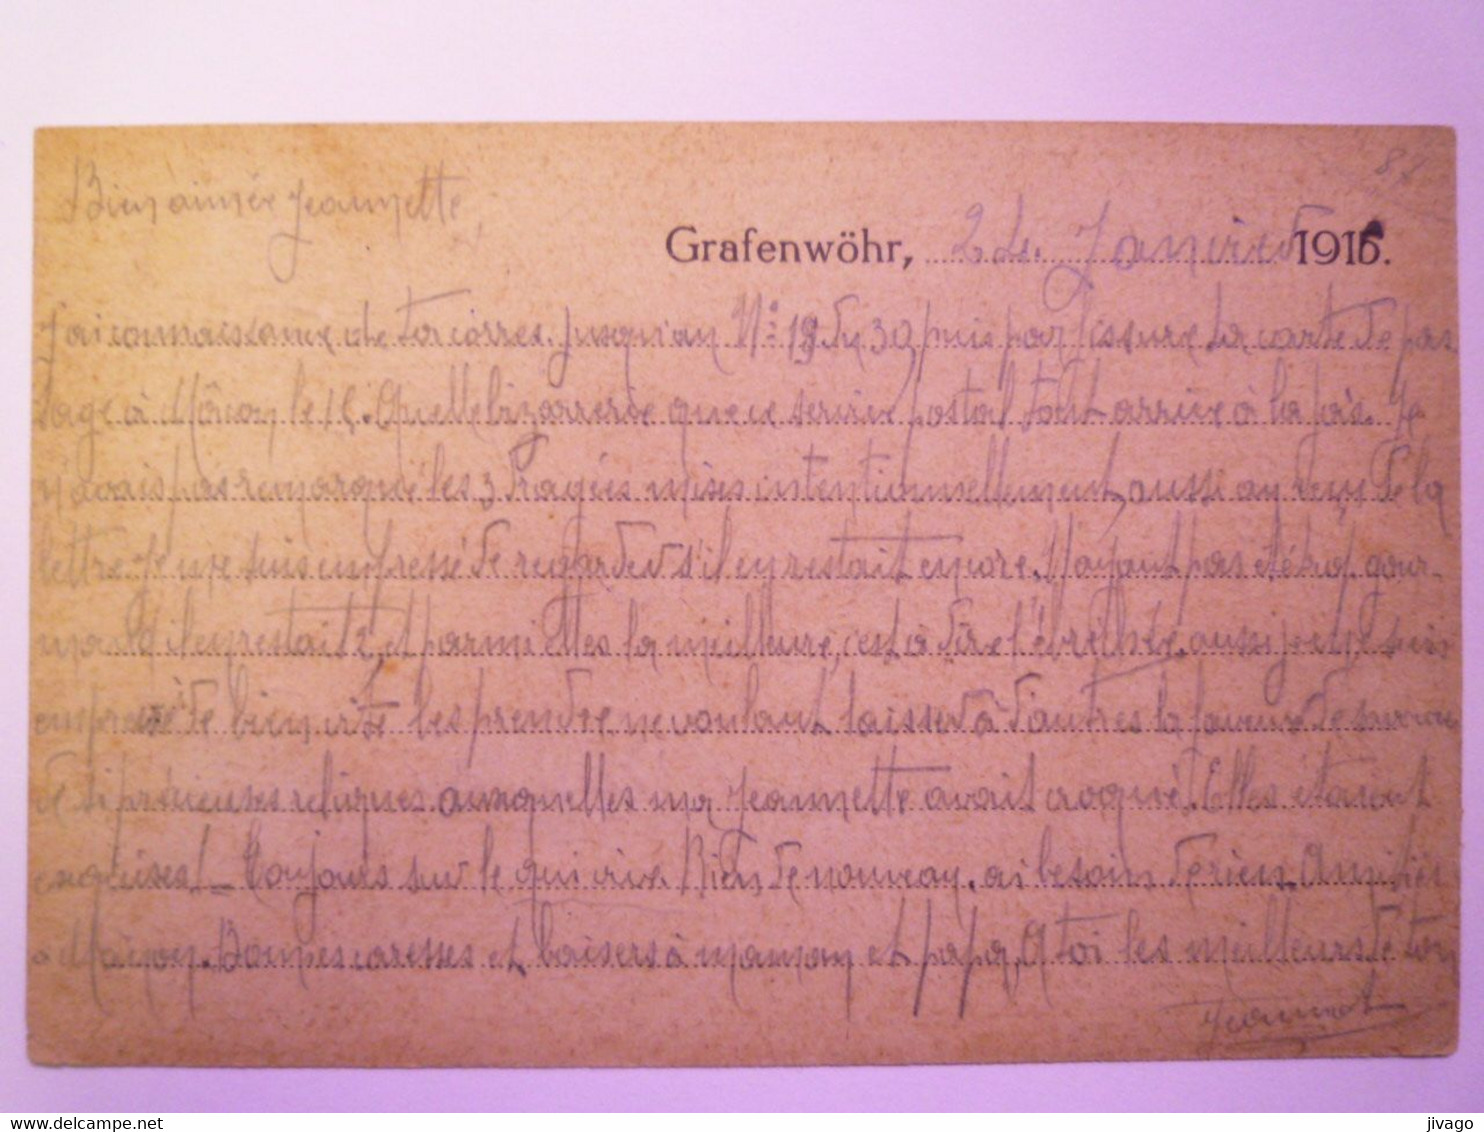 87
Bien aimée Jeannette
Grafenwöhr, 24 Janvier 1916.
J'ai connaissance de ta corres. jusqu'au N° 19 du 30, puis par la carte de pas
sage à Mâcon le. Quelle bizarrerie que ce service postal tout arrive à la fois. Je
n'avais pas remarqué les 3 dragées mises intentionnellement, aussi au de la
lettre je me suis empressé de regarder s'il en restait encore. N'ayant pas été trop gour-
mand il en restait 2, et parmi elles la meilleure, c'est à dire l'ébréchée, aussi je me suis
empressé de bien vite les prendre ne voulant laisser à d'autres la faveur de
de si précieuses reliques auxquelles ma Jeannette avait croqué. Elles étaient
exquises! = Toujours sur le qui vive. Rien de nouveau, ai besoin de rien. Amitiés
à Mâcon. Bonnes caresses et baisers à maman et papa, A toi les meilleurs de ton
Jeannot
jivago
www.delcampe.net